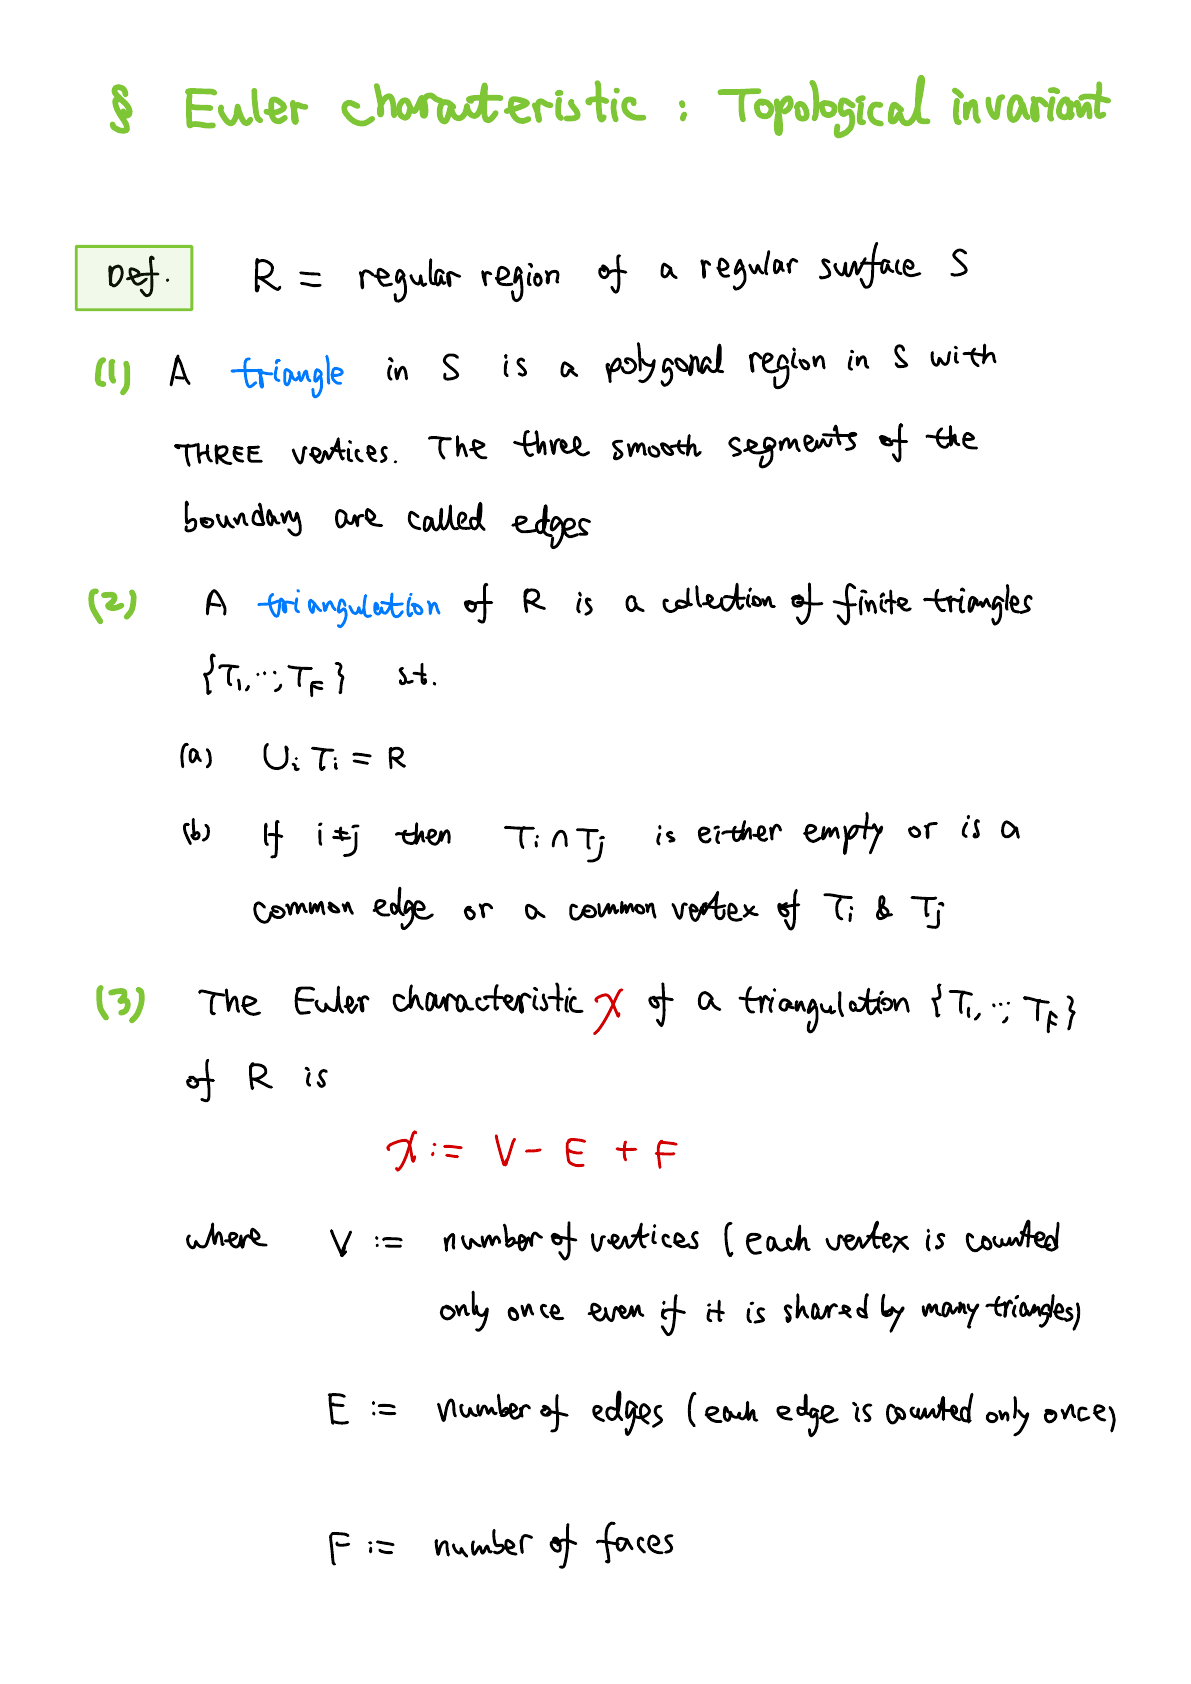 § Euler characteristic : Topological invariant
Def. R = regular region of a regular surface S
(1) A triangle in S is a polygonal region in S with
THREE vertices. The three smooth segments of the
boundary are called edges
(2) A triangulation of R is a collection of finite triangles
{T₁, ⋯, T_F} s.t.
(a) ∪ᵢ Tᵢ = R
(b) If i ≠ j then Tᵢ ∩ Tⱼ is either empty or is a
common edge or a common vertex of Tᵢ & Tⱼ
(3) The Euler characteristic χ of a triangulation {T₁, ⋯, T_F}
of R is
χ := V - E + F
where V := number of vertices (each vertex is counted
only once even if it is shared by many triangles)
E := number of edges (each edge is counted only once)
F := number of faces